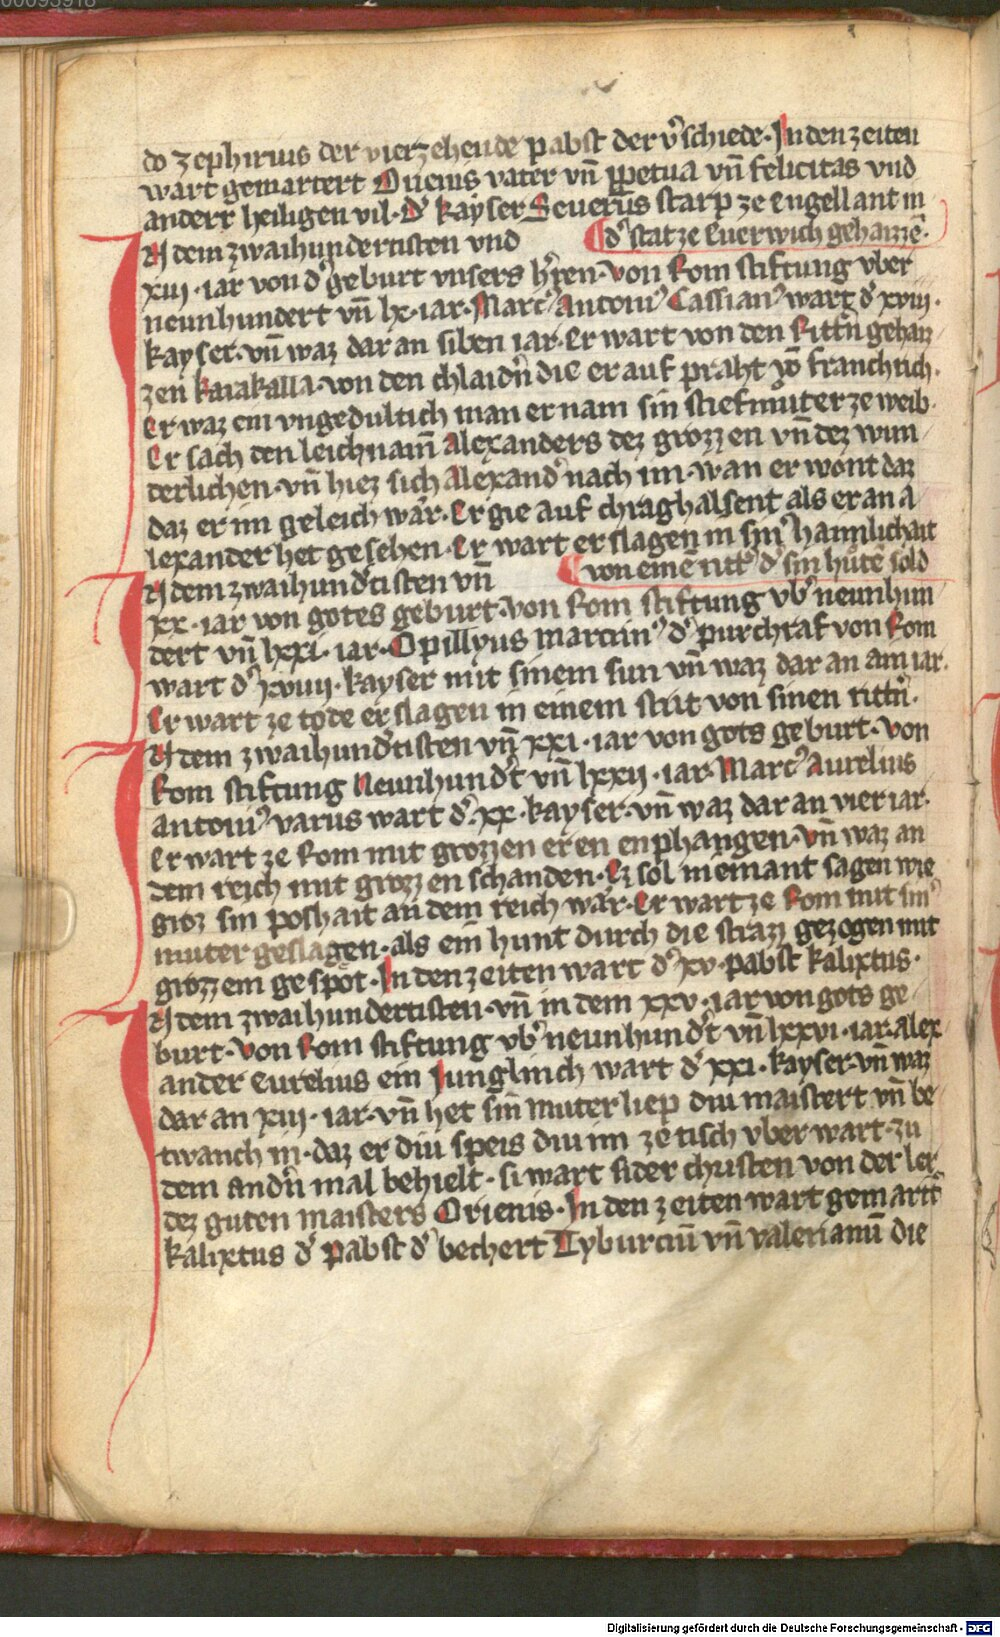 00093918
do Zephirius der vierzehende pabst der v̾schiede · In den zeiten
wart gemartert Orienis vater vn̄ ꝑpetua vn̄ felicitas vnd
anderr heiligen vil · D̾ kayser Seuerus starp ze engellant in
d̾ stat ze Euerwich gehaizzē ·
In dem zwaihundertisten vnd
xiij · iar von d̾ geburt vnsers h̾ren · Von Rom stiftung vber
neunhundert vn̄ lx · iar · Marc᾽ Antoni᾽ Cassian᾽ wart d̾ xviij ·
kayser · vn̄ waz dar an siben iar · Er wart von den Rittn̄ gehaiz
zen karakalla · von den chlaidn̄ die er auf praht vō franchrich ·
Er waz ein vngedultich man er nam sin stiefmuter ze weib ·
Er sach den leichnam̄ Alexanders dez grozzen vn̄ dez wun
derlichen · vn̄ hiez sich Alexand̾ nach im · wan er wont daz
daz er im geleich wår · Er gie auf chraghalsent als er an A
lexander het gesehen · Er wart erslagen in sin̾ haimlichait
von einē ritt̾ d̾ sin hůtē sold
In dem zwaihund̾tisten vn̄
xx · iar von gotes geburt · Von Rom stiftung vb̾ neunhun
dert vn̄ lxxi · iar · Opillyus marcrin᾽ d̾ purchraf von Rom
wart d̾ xviiij · kayser mit sinem sun vn̄ waz dar an ain iar ·
Er wart ze tode erslagen in einem strit von sinen rittn̄ ·
In dem zwaihund̾tisten vn̄ xxi · iar von gots geburt · Von
Rom stiftung Neunhund̾t vn̄ lxxij · iar · Marc᾽ Aurelius
antoni᾽ varus wart d̾ · xx · kayser · vn̄ waz dar an vier iar ·
Er wart ze Rom mit grozzen eren enphangen · Vn̄ waz an
dem reich mit grozzen schanden · Ez sol niemant sagen wie
groz sin poshait an dem reich wår · Er wart ze Rom mit sin̾
muter geslagen · als ein hunt durch die strazz gezogen mit
grozzem gespöt · In den zeiten wart d̾ xv · pabst kalixtus ·
In dem zwaihundertisten · vn̄ in dem xxv · iar von gots ge
burt · Von Rom stiftung vb̾ neunhund̾t vn̄ lxxvi · iar · Alex
ander Eurelius ein Junglinch wart d̾ xxi · kayser · vn̄ waz
dar an xiij · iar · vn̄ het sin̄ muter liep diu maistert vn̄ be
twanch in · daz er diu speis diu im ze tisch vber wart · zu
dem andn̄ mal behielt · si wart sider christen von der ler
dez guten maisters Orienis · In den zeiten wart gemartt̾
kalixtus d̾ Pabst d̾ bechert Tyburciū vn̄ valerianū die
Digitalisierung gefördert durch die Deutsche Forschungsgemeinschaft - DFG